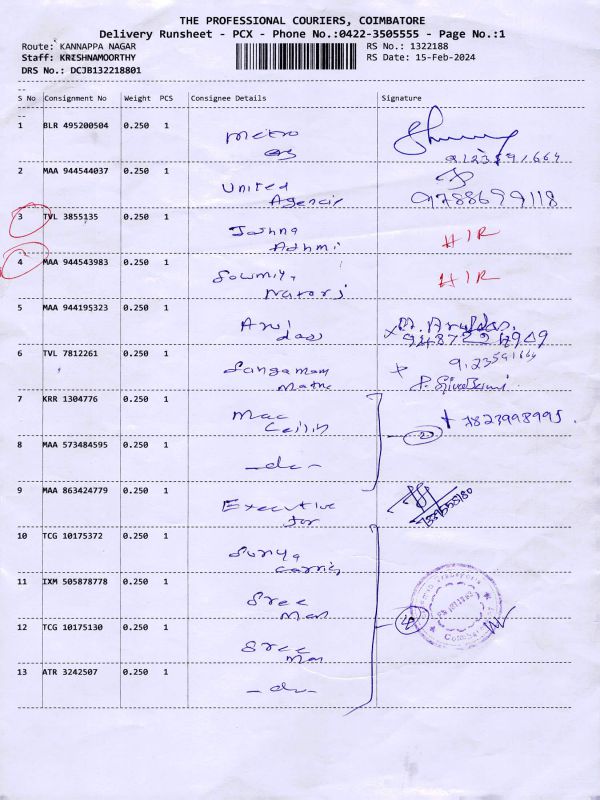 THE PROFESSIONAL COURIERS, COIMBATORE
Delivery Runsheet - PCX - Phone No.:0422-3505555 - Page No.:1
Route: KANNAPPA NAGAR RS No.: 1322188
Staff: KRISHNAMOORTHY RS Date: 15-Feb-2024
DRS No.: DCJB132218801
--
S No Consignment No Weight PCS Consignee Details Signature
--
1 BLR 495200504 0.250 1 Metro
2 MAA 944544037 0.250 1 United
Agencis 9788699118
3 TVL 3855135 0.250 1 Joshna H/R
Adhmi
4 MAA 944543983 0.250 1 Sowmiya H/R
5 MAA 944195323 0.250 1 Arul x M. Aruldas.
das
6 TVL 7812261 0.250 1 Sangamam
7 KRR 1304776 0.250 1 Mac 7823998995.
2
8 MAA 573484595 0.250 1 -do-
9 MAA 863424779 0.250 1 Executive
for
10 TCG 10175372 0.250 1 Surya
11 IXM 505878778 0.250 1 Sree
4
12 TCG 10175130 0.250 1 Sree
13 ATR 3242507 0.250 1 -do-